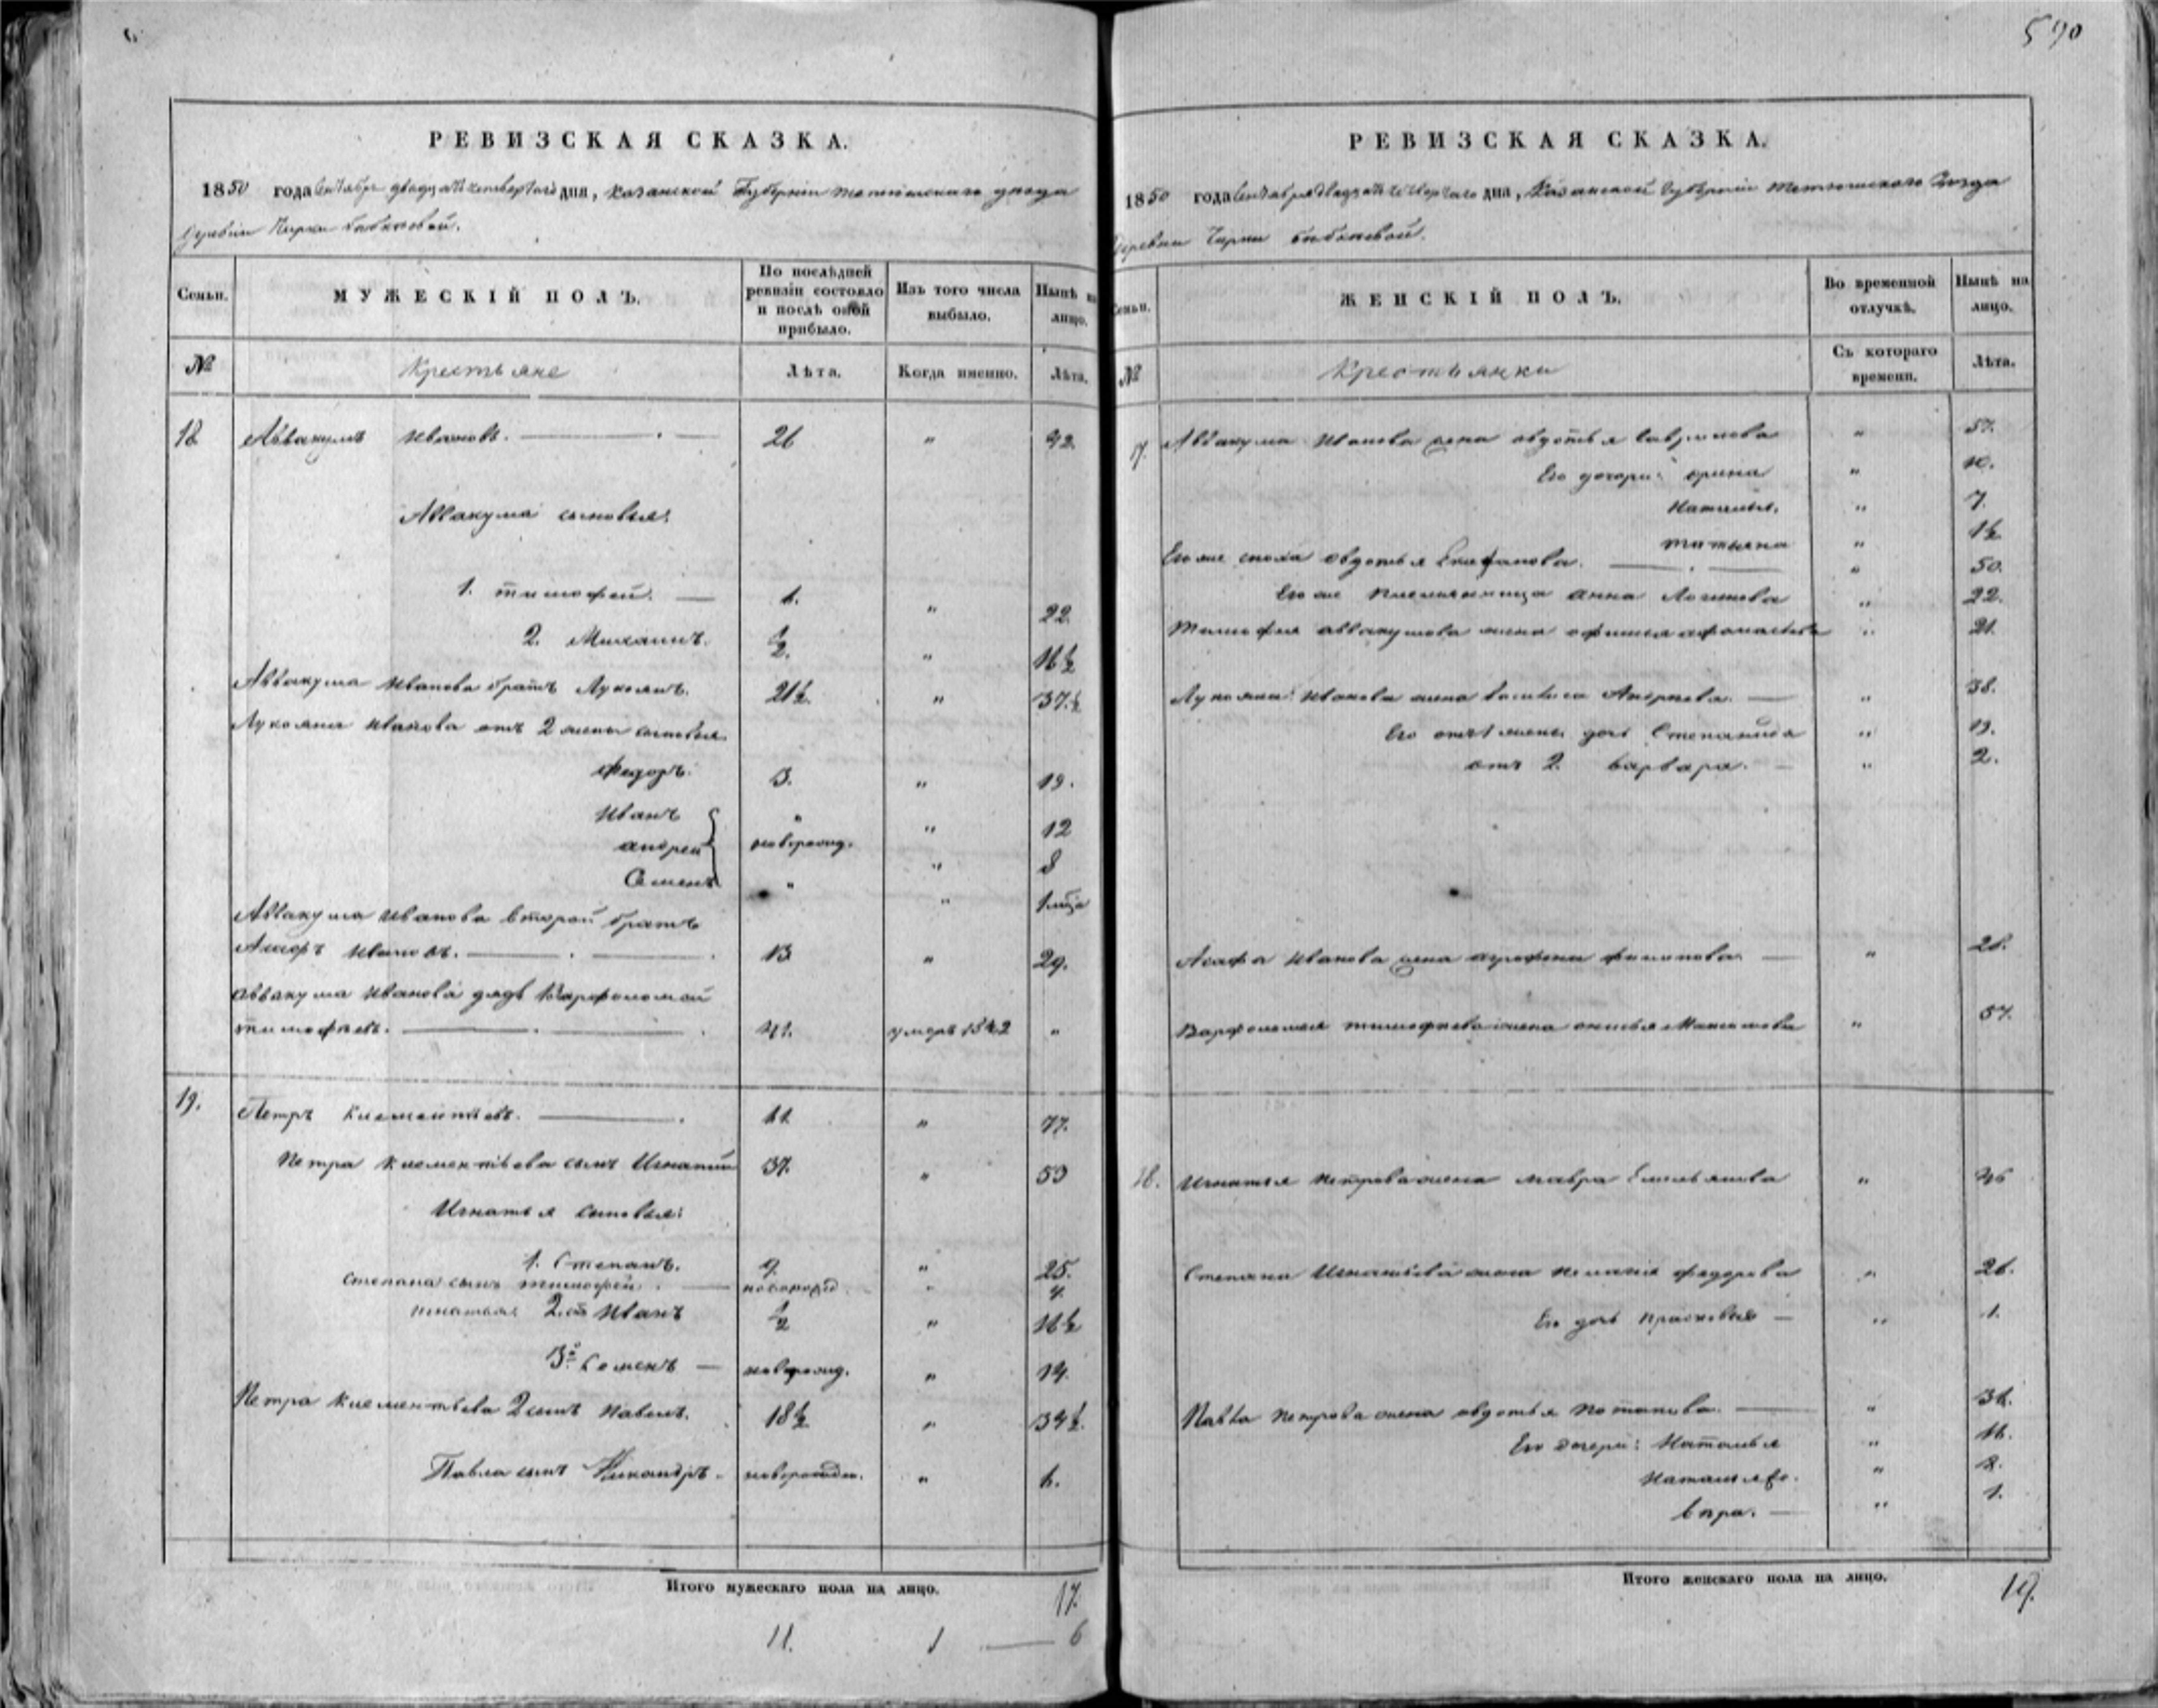 590
РЕВИЗСКАЯ СКАЗКА.
1850 года Сентября двадцать четвертаго дня, Казанской Губернии Тетюшскаго уезда
Деревни Чирки Бибкеевой.
Семьи.
МУЖЕСКІЙ ПОЛЪ.
По послѣдней ревизіи состояло и послѣ оной прибыло.
Изъ того числа выбыло.
Нынѣ на лицо.
№
Крестьяне
Лѣта.
Когда именно.
Лѣта.
18 Аввакумъ Ивановъ. 26 " 42.
Аввакума сыновья:
1. тимофей. 6. " 22.
2. Михаилъ. 1/2. " 16 1/2
Аввакума Иванова братъ Лукоянъ. 21 1/2. " 37. 1/2
Лукояна Иванова отъ 2 жены сыновья
Федоръ. 3. " 19.
Иванъ " " 12
андрей новорожд. " 8
Семенъ " " 1 мѣца
Аввакума Иванова второй братъ
Асафъ Ивановъ. 13 " 29.
аввакума Иванова дядя Варфоломей
тимофѣевъ. 41. умеръ 1842 "
19. Петръ Клементьевъ. 61. " 77.
Петра Клементьева сынъ Игнатий 37. " 53
Игнатья сыновья:
1. Степанъ. 9. " 25.
Степана сынъ тимофей. новорожд. " 4.
игнатья 2й Иванъ 1/2 " 16 1/2
3й Семенъ новорожд. " 14.
Петра Клементьева 2 сынъ Павелъ. 18 1/2 " 34 1/2.
Павла сынъ Никандръ. новорожден. " 6.
Итого мужескаго пола на лицо. 17.
11. 1 — 6
РЕВИЗСКАЯ СКАЗКА.
1850 года Сентября двадцать четвертаго дня, Казанской Губерніи Тетюшскаго Уезда
Деревни Чирки Бибкеевой.
Семьи.
ЖЕНСКІЙ ПОЛЪ.
Во временной отлучкѣ.
Нынѣ на лицо.
№
Крестьянки
Съ котораго времени.
Лѣта.
17. Аввакума Иванова жена авдотья " 37.
Его дочери: орина " 10.
Наталья. " 7.
татьяна " 1 1/2
Его же сноха овдотья " 50.
Его же племянница анна Логинова " 22.
Тимофея аввакумова жена афанасьева " 21.
Лукояна Иванова жена Василиса Андреева. " 38.
Его отъ 1 жены дочь Степанида " 19.
отъ 2. варвара. " 2.
Асафа Иванова жена агрофена филипова " 28.
Варфоломея тимофѣева жена Максимова " 57.
18. Игнатья Петрова жена мавра Емельянова " 46
Степана Игнатьева жена федорова " 26.
Его дочь прасковья " 1.
Павла Петрова жена авдотья Потапова. " 36.
Его дочери: Наталья " 16.
" 8.
вѣра. " 1.
Итого женскаго пола на лицо. 19.